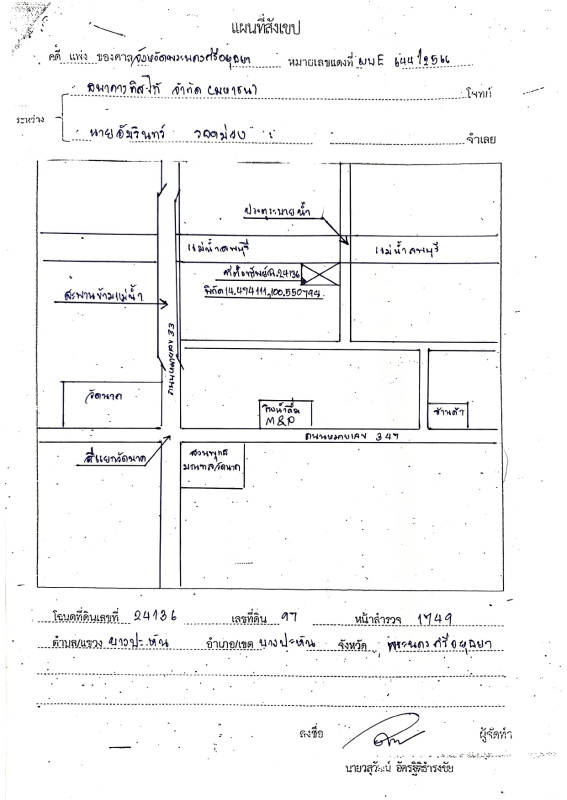 แผนที่สังเขป
คดี แพ่ง ของศาลจังหวัดพระนครศรีอยุธยา หมายเลขแดงที่ ผบE 644/2566
ธนาคารทิสโก้ จำกัด (มหาชน) โจทก์
ระหว่าง
นายอัมรินทร์ จำเลย
ประตูระบายน้ำ
แม่น้ำลพบุรี
แม่น้ำลพบุรี
ที่ตั้งทรัพย์ฉ.24136
พิกัด 14.474111,100.550794
สะพานข้ามแม่น้ำ
ถนนหมายเลข 33
วัดนาค
โรงน้ำดื่ม
M&P
ร้านค้า
ถนนหมายเลข 347
สี่แยกวัดนาค
สวนพุทธ
มณฑลวัดนาค
โฉนดที่ดินเลขที่ 24136 เลขที่ดิน 97 หน้าสำรวจ 1749
ตำบล/แขวง บางปะหัน อำเภอ/เขต บางปะหัน จังหวัด พระนครศรีอยุธยา
ลงชื่อ ผู้จัดทำ
นายวสุวัฒน์ อัครฐิติธำรงชัย